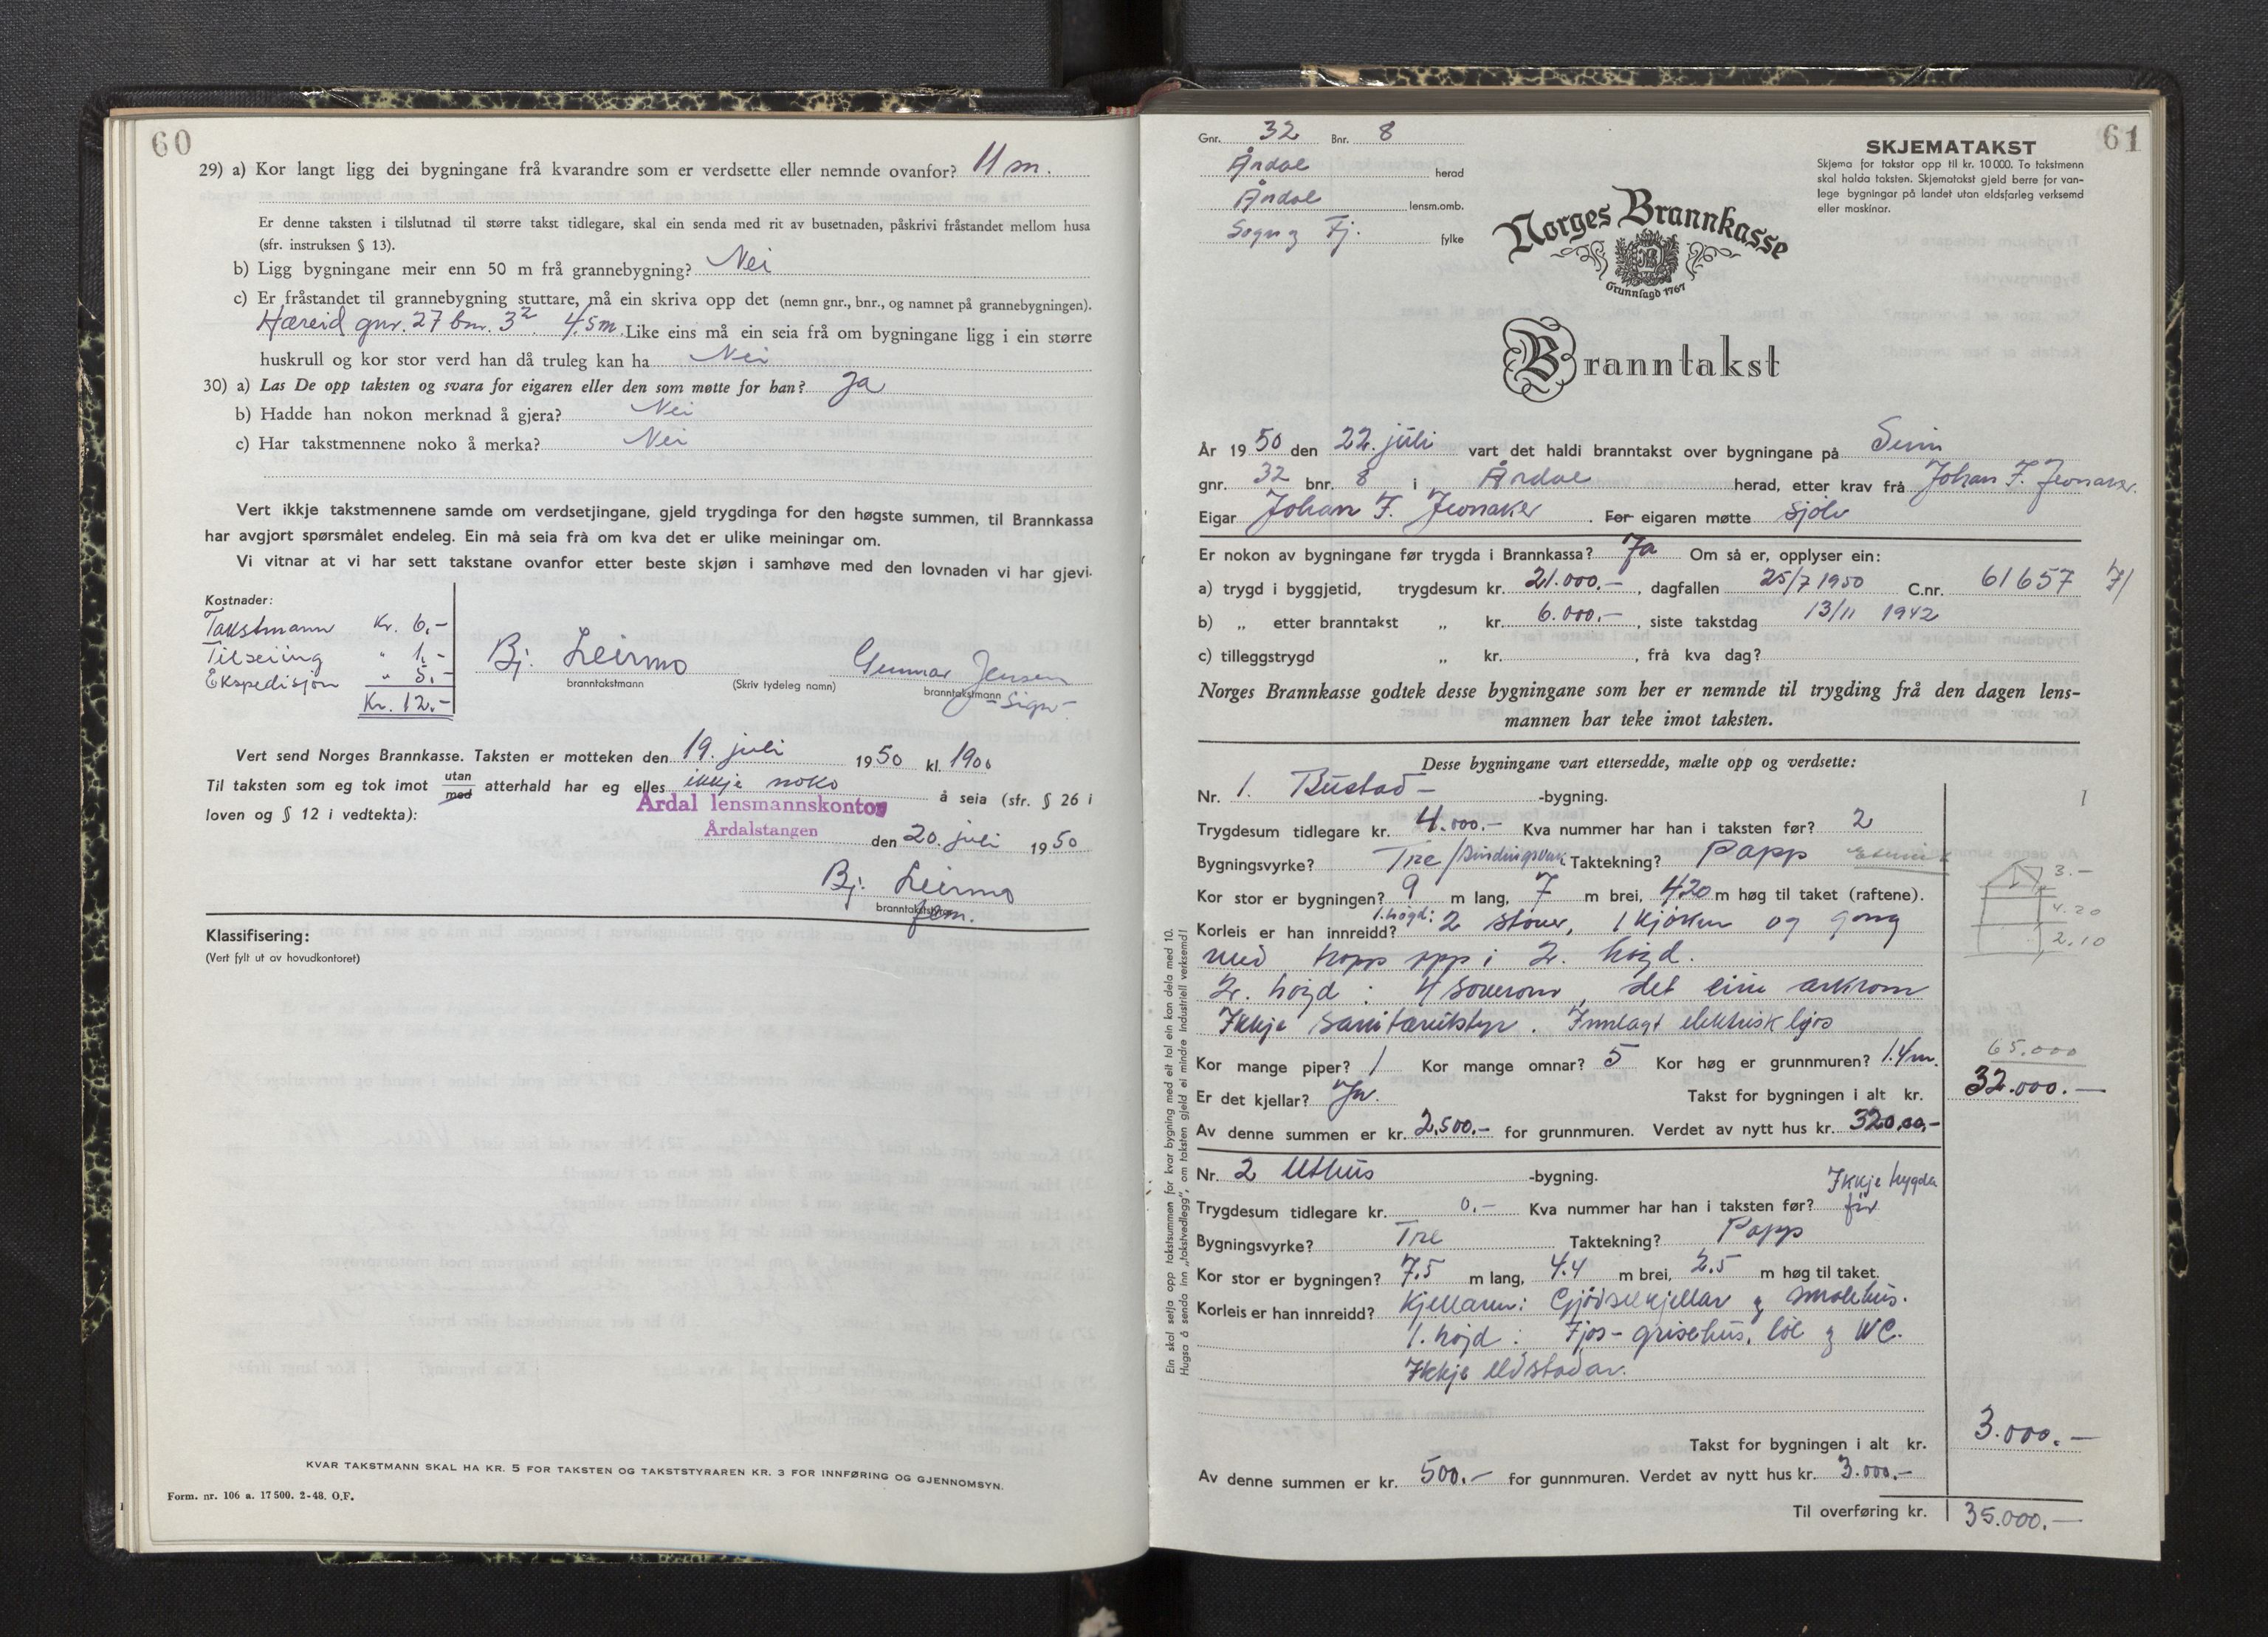 60
29) a) Kor langt ligg dei bygningane frå kvarandre som er verdsette eller nemnde ovanfor? 11 m.
Er denne taksten i tilslutnad til større takst tidlegare, skal ein senda med rit av busetnaden, påskrivi fråstandet mellom husa
(sfr. instruksen § 13).
b) Ligg bygningane meir enn 50 m frå grannebygning? Nei
c) Er fråstandet til grannebygning stuttare, må ein skriva opp det (nemn gnr., bnr., og namnet på grannebygningen).
Hæreid gnr. 27 bnr. 32. 4,5 m. Like eins må ein seia frå om bygningane ligg i ein større
huskrull og kor stor verd han då truleg kan ha Nei
30) a) Las De opp taksten og svara for eigaren eller den som møtte for han? Ja
b) Hadde han nokon merknad å gjera? Nei
c) Har takstmennene noko å merka? Nei
Vert ikkje takstmennene samde om verdsetjingane, gjeld trygdinga for den høgste summen, til Brannkassa
har avgjort spørsmålet endeleg. Ein må seia frå om kva det er ulike meiningar om.
Vi vitnar at vi har sett takstane ovanfor etter beste skjøn i samhøve med den lovnaden vi har gjevi.
Kostnader:
Takstmann Kr. 6,-
Tilseiing " 1,-
Ekspedisjon " 5,-
Kr. 12.-
Bj. Leirmo Gunnar Jensen
branntakstmann (Skriv tydeleg namn) branntakstmann
- Sign -
Vert send Norges Brannkasse. Taksten er motteken den 19. juli 1950 kl. 1900
Til taksten som eg tok imot utan med atterhald har eg elles ikkje noko å seia (sfr. § 26 i
loven og § 12 i vedtekta):
Årdal lensmannskontor
Årdalstangen
den 20. juli 1950
Bj. Leirmo
branntakststyrar
Klassifisering:
(Vert fylt ut av hovudkontoret)
KVAR TAKSTMANN SKAL HA KR. 5 FOR TAKSTEN OG TAKSTSTYRAREN KR. 3 FOR INNFØRING OG GJENNOMSYN.
Form. nr. 106 a. 17 500. 2-48. O.F.
61
Gnr. 32 Bnr. 8
Årdal herad
Årdal lensm.omb.
Sogn og Fj. fylke
SKJEMATAKST
Skjema for takstar opp til kr. 10 000. To takstmenn
skal halda taksten. Skjematakst gjeld berre for van-
lege bygningar på landet utan eldsfarleg verksemd
eller maskinar.
Norges Brannkasse
Grunnlagd 1767
Branntakst
År 1950 den 22. juli vart det haldi branntakst over bygningane på
gnr. 32 bnr. 8 i Årdal herad, etter krav frå Johan F.
Eigar Johan F. For eigaren møtte sjølv
Er nokon av bygningane før trygda i Brannkassa? Ja Om så er, opplyser ein:
a) trygd i byggjetid, trygdesum kr. 21.000.-, dagfallen 25/7 1950 C.nr. 61657 71
b) „ etter branntakst „ kr. 6.000.-, siste takstdag 13/11 1942
c) tilleggstrygd „ kr. , frå kva dag?
Norges Brannkasse godtek desse bygningane som her er nemnde til trygding frå den dagen lens-
mannen har teke imot taksten.
Desse bygningane vart ettersedde, mælte opp og verdsette:
Nr. 1. Bustad- -bygning. 1
Trygdesum tidlegare kr. 4.000.- Kva nummer har han i taksten før? 2
Bygningsvyrke? Tre/Bindingsverk Taktekning? Papp
3.-
Kor stor er bygningen? 9 m lang, 7 m brei, 4.20 m høg til taket (raftene).
4.20
Korleis er han innreidd? 1. høgd: 2 stover, 1 kjøken og gong
2.10
med tropp opp i 2. høgd.
2. høgd: 4 soverom, det eine arkrom
Ikkje sanitærutstyr. Innlagt elektrisk ljos
65.000
Kor mange piper? 1 Kor mange omnar? 5 Kor høg er grunnmuren? 1.4 m.
Er det kjellar? Ja. Takst for bygningen i alt kr. 32.000.-
Av denne summen er kr. 2.500.- for grunnmuren. Verdet av nytt hus kr. 32000,-
Nr. 2 Uthus -bygning.
Trygdesum tidlegare kr. 0.- Kva nummer har han i taksten før? Ikkje trygda før
Bygningsvyrke? Tre Taktekning? Papp
Kor stor er bygningen? 7.5 m lang, 4.4 m brei, 2.5 m høg til taket.
Korleis er han innreidd? Kjellaren: Gjødselkjellar og smalehus.
1. høgd: Fjos - grisehus, løe og WC.
Ikkje eldstadar.
Takst for bygningen i alt kr. 3.000.-
Av denne summen er kr. 500.- for gunnmuren. Verdet av nytt hus kr. 3.000.-
Til overføring kr. 35.000.-
Ein skal setja opp takstsummen for kvar bygning med eit tal ein kan dela med 10.
Hugsa å senda inn „takstvedlegg", om taksten gjeld ei mindre industriell verksemd!